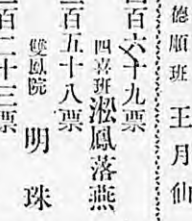 德順班 王月仙
百六十九票
四喜班 淞鳳落燕
百五十八票
雙鳳院 明珠
百二十三票